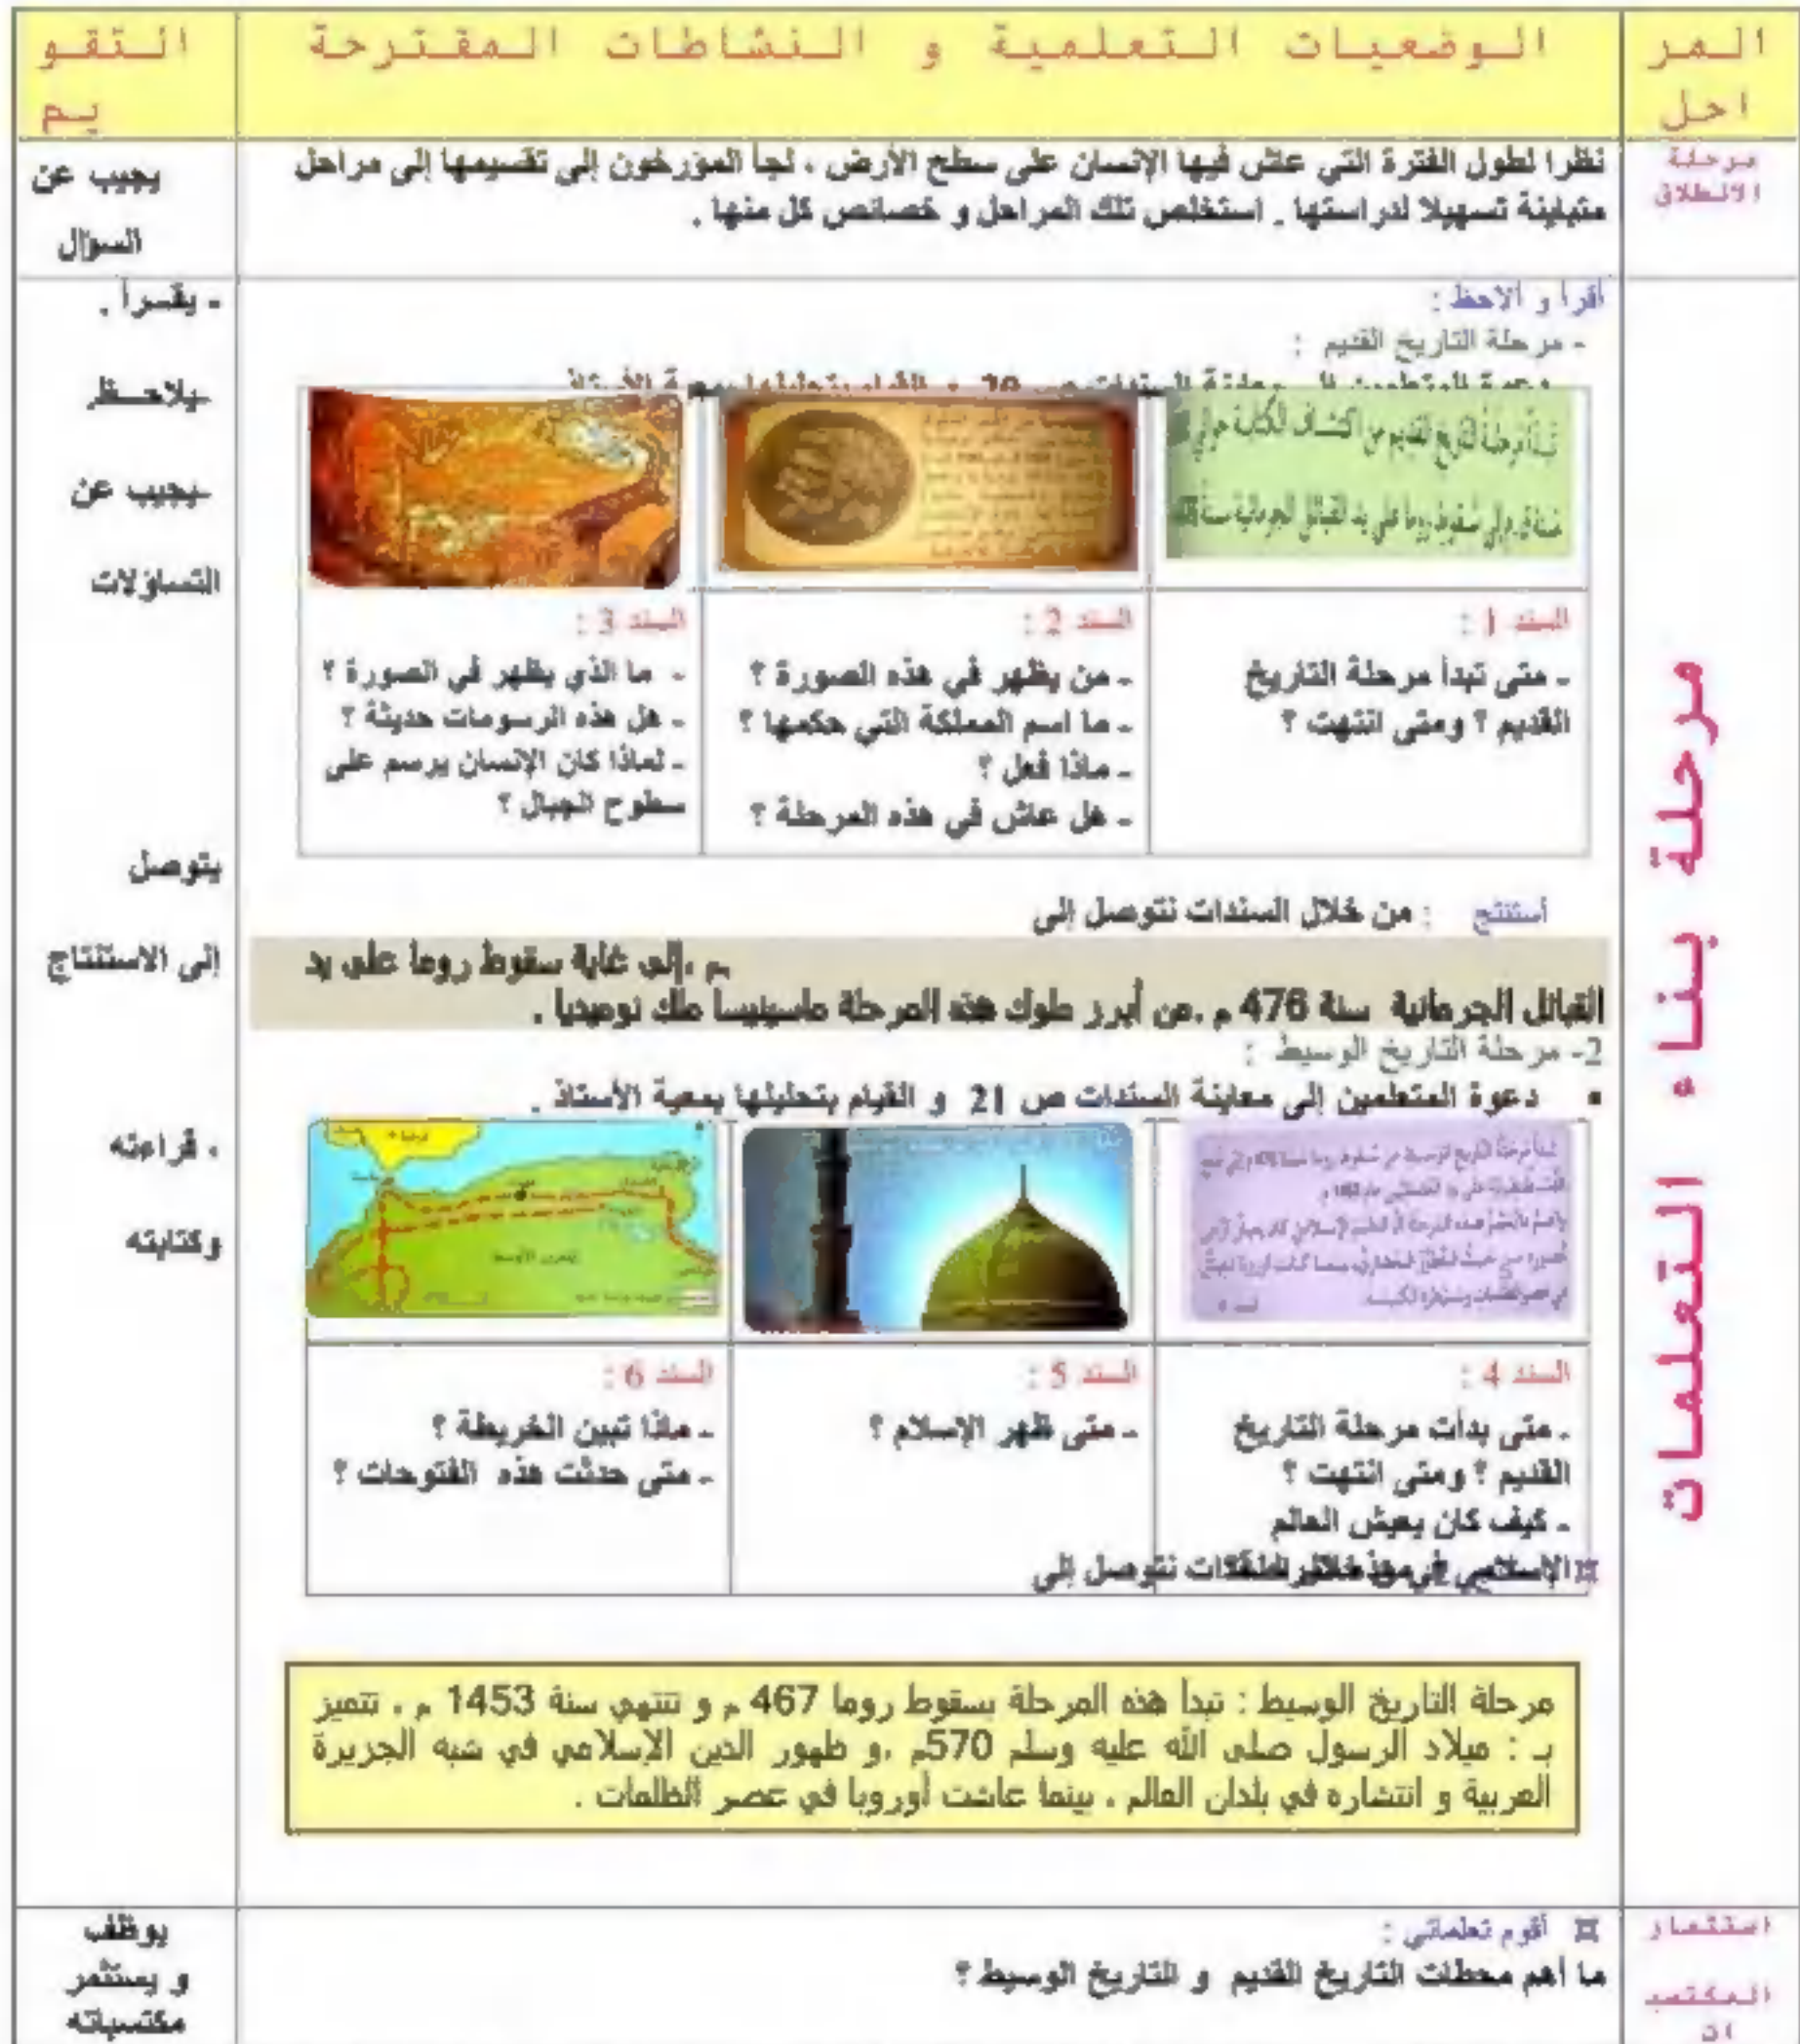 المراحل
الوضعيات التعلمية و النشاطات المقترحة
التقويم
مرحلة
الانطلاق
نظرا لطول الفترة التي عاش فيها الإنسان على سطح الأرض ، لجأ المؤرخون إلى تقسيمها إلى مراحل
متباينة تسهيلا لدراستها . استخلص تلك المراحل و خصائص كل منها .
يجيب عن
السؤال
مرحلة بناء التعلمات
أقرأ و ألاحظ :
- مرحلة التاريخ القديم :
دعوة المتعلمين إلى معاينة السندات ص 20 و القيام بتحليلها بمعية الأستاذ
تبدأ مرحلة التاريخ القديم من اكتشاف الكتابة حوالي
سقوط روما على يد القبائل الجرمانية سنة
السند 1 :
- متى تبدأ مرحلة التاريخ
القديم ؟ ومتى انتهت ؟
السند 2 :
- من يظهر في هذه الصورة ؟
- ما اسم المملكة التي حكمها ؟
- ماذا فعل ؟
- هل عاش في هذه المرحلة ؟
السند 3 :
- ما الذي يظهر في الصورة ؟
- هل هذه الرسومات حديثة ؟
- لماذا كان الإنسان يرسم على
سطوح الجبال ؟
أستنتج : من خلال السندات نتوصل إلى
م ،إلى غاية سقوط روما على يد
القبائل الجرمانية سنة 476 م .من أبرز ملوك هذه المرحلة ماسينيسا ملك نوميديا .
2- مرحلة التاريخ الوسيط :
▪ دعوة المتعلمين إلى معاينة السندات ص 21 و القيام بتحليلها بمعية الأستاذ .
تبدأ مرحلة التاريخ الوسيط من سقوط روما سنة 476 م إلى
السند 4 :
- متى بدأت مرحلة التاريخ
القديم ؟ ومتى انتهت ؟
- كيف كان يعيش العالم
الإسلامي في
من خلال السندات نتوصل إلى
السند 5 :
- متى ظهر الإسلام ؟
السند 6 :
- ماذا تبين الخريطة ؟
- متى حدثت هذه الفتوحات ؟
مرحلة التاريخ الوسيط : تبدأ هذه المرحلة بسقوط روما 467 م و تنتهي سنة 1453 م ، تتميز
بـ : ميلاد الرسول صلى الله عليه وسلم 570م ،و ظهور الدين الإسلامي في شبه الجزيرة
العربية و انتشاره في بلدان العالم ، بينما عاشت أوروبا في عصر الظلمات .
- يقـرأ .
-يلاحـظ
-يجيب عن
التساؤلات
يتوصل
إلى الاستنتاج
، قراءته
وكتابته
استثمار
المكتسبات
¤ أقوم تعلماتي :
ما أهم محطات التاريخ القديم و التاريخ الوسيط ؟
يوظف
و يستثمر
مكتسباته